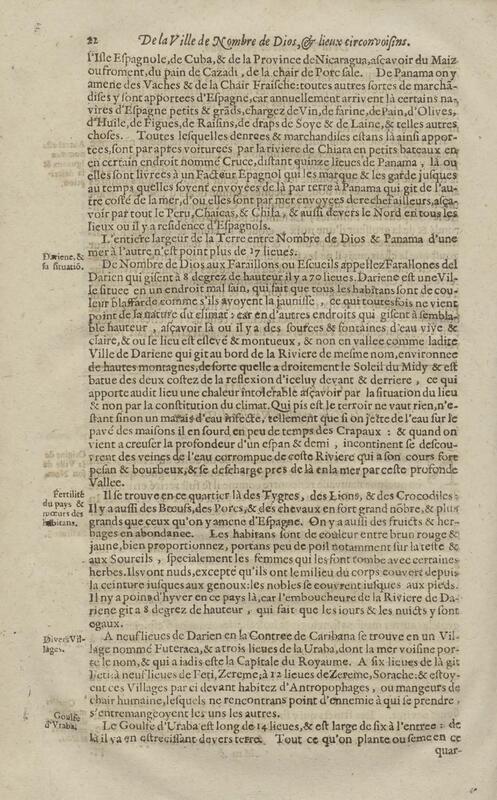 22 De la Ville de Nombre de Dios, & lieux circonvoisins.
l'Isle Espagnole, de Cuba, & de la Province de Nicaragua, asçavoir du Maiz
ou froment, du pain de Cazadi, de la chair de Porc sale. De Panama on y
amene des Vaches & de la Chair Fraische: toutes autres sortes de marchan-
dises y sont apportees d'Espagne, car annuellement arrivent là certains na-
vires d'Espagne petits & grãds, chargez de Vin, de farine, de Pain, d'Olives,
d'Huile, de Figues, de Raisins, de draps de Soye & de Laine, & telles autres
choses. Toutes lesquelles denrees & marchandises estans là ainsi appor-
tees, sont par aptes voiturees par la riviere de Chiara en petits bateaux en
en certain endroit nommé Cruce, distant quinze lieues de Panama, là ou
elles sont livrées à un Facteur Epagnol qui les marque & les garde jusques
au temps quelles soyent envoyees de là par terre à Panama qui git de l'au-
tre costé de la mer, d'ou elles sont par mer envoyees derechef ailleurs, asça-
voir par tout le Peru, Chaicas, & Chila, & aussi devers le Nord en tous les
lieux ou il y a residence d'Espagnols.
L'entiere largeur de la Terre entre Nombre de Dios & Panama d'une
mer à l'autre n'est point plus de 17 lieues.
Dariene, &
sa situatiõ.
De Nombre de Dios aux Farallons ou Escueils appellez Farallones del
Darien qui gisent à 8 degrez de hauteur il y a 70 lieues. Dariene est une Vil-
le situee en un endroit mal sain, qui fait que tous les habitans sont de cou-
leur blaffarde comme s'ils avoyent la jaunisse, ce qui toutesfois ne vient
point de la nature du climat: car en d'autres endroits qui gisent à sembla-
ble hauteur, asçavoir là ou il y a des sources & fontaines d'eau vive &
claire, & ou se lieu est eslevé & montueux, & non en vallee comme ladite
Ville de Dariene qui git au bord de la Riviere de mesme nom, environnee
de hautes montagnes, de sorte quelle a droitement le Soleil du Midy & est
batue des deux costez de la reflexion d'iceluy devant & derriere, ce qui
apporte audit lieu une chaleur intolerable asçavoir par la situation du lieu
& non par la constitution du climat. Qui pis est le terroir ne vaut rien, n'e-
stant sinon un marais d'eau infecte, tellement que si on jette de l'eau sur le
pavé des maisons il en sourd en peu de temps des Crapaux: & quand on
vient a creuser la profondeur d'un espan & demi, incontinent se descou-
vrent des veines de l'eau corrompue de ceste Riviere qui a son cours fort
pesan & bourbeux, & se descharge pres de là en la mer par ceste profonde
Vallee.
Fertilité
du pays &
mœurs des
habitans.
Il se trouve en ce quartier là des Tygres, des Lions, & des Crocodiles:
Il y a aussi des Bœufs, des Porcs, & des chevaux en fort grand nõbre, & plus
grands que ceux qu'on y amene d'Espagne. On y a aussi des fruicts & her-
bages en abondance. Les habitans sont de couleur entre brun rouge &
jaune, bien proportionnez, portans peu de poil notamment sur la teste &
aux Sourcils, specialement les femmes qui les font tombe avec certaines
herbes. Ils vont nuds, excepté qu'ils ont le milieu du corps couvert depuis
la ceinture jusques aux genoux: les nobles se couvrent jusques aux pieds.
Il ny a point d'hyver en ce pays là, car l'emboucheure de la Riviere de Da-
riene git a 8 degrez de hauteur, qui fait que les iours & les nuicts y sont
egaux.
Divers Vil-
lages.
A neuf lieues de Darien en la Contree de Caribana se trouve en un Vil-
lage nommé Futeraca, & a trois lieues de la Uraba, dont la mer voisine por-
te le nom, & qui a iadis esté la Capitale du Royaume. A six lieues de là git
Feti: à neuf lieues de Feti, Zereme, à 12 lieues de Zereme, Sorache: & estoy-
ent ces Villages par ci devant habitez d'Antropophages, ou mangeurs de
chair humaine, lesquels ne rencontrans point d'ennemie à qui se prendre,
s'entremangeoyent les uns les autres.
Goulfe
d'Vraba.
Le Goulfe d'Uraba est long de 14 lieues, & est large de six à l'entree: de
là il va en estrecissant devers terre. Tout ce qu'on plante ou seme en ce
quar-